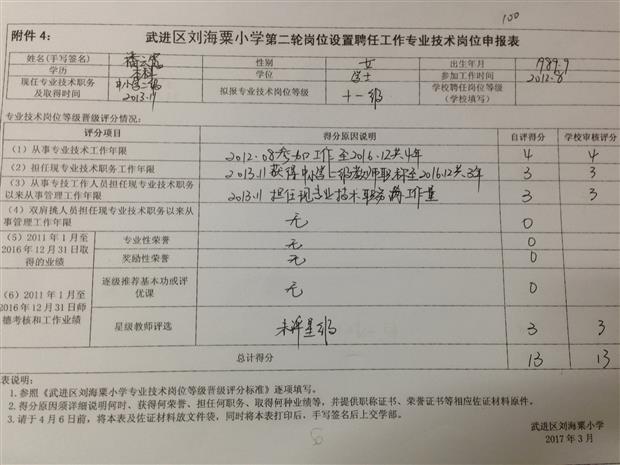 100
附件4:
武进区刘海粟小学第二轮岗位设置聘任工作专业技术岗位申报表
姓名(手写签名) 性别 女 出生年月 1989.9
学历 本科 学位 学士 参加工作时间 2012.8
现任专业技术职务及取得时间 中小学二级 2013.11 拟报专业技术岗位等级 十一级 学校聘任岗位等级(学校填写)
专业技术岗位等级晋级评分情况:
评分项目 得分原因说明 自评得分 学校审核评分
(1)从事专业技术工作年限 2012.08参加工作至2016.12共4年 4 4
(2)担任现专业技术职务工作年限 2013.11获得中小学二级教师职称至2016.12共3年 3 3
(3)从事专技工作人员担任现专业技术职务以来从事管理工作年限 2013.11担任现专业技术职务满工作量 3 3
(4)双肩挑人员担任现专业技术职务以来从事管理工作年限 无 0
(5)2011年1月至2016年12月31日取得的业绩 专业性荣誉 无 0
奖励性荣誉 无 0
(6)2011年1月至2016年12月31日师德考核和工作业绩 逐级推荐基本功或评优课 无 0
星级教师评选 未评星级 3 3
总计得分 13 13
表说明:
1.参照《武进区刘海粟小学专业技术岗位等级晋级评分标准》逐项填写。
2.得分原因须详细说明何时、获得何荣誉、担任何职务、取得何种业绩等,并提供职称证书、荣誉证书等相应佐证材料原件。
3.请于4月6日前,将本表及佐证材料放文件袋,同时将本表打印后,手写签名后上交学部。
武进区刘海粟小学
2017年3月